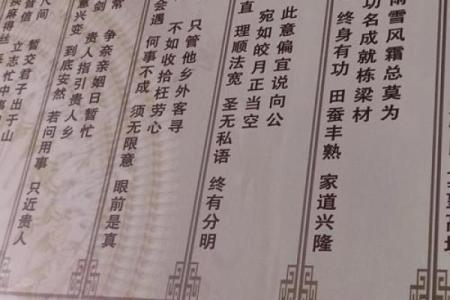 雨雪风霜总莫为
功名成就栋梁材
终身有功 田蚕丰熟 家道兴隆
此意偏宜说向公
宛如皎月正当空
直 理顺法宽 圣无私语 终有分明
只管他乡外客寻
不如收拾枉劳心
会遇 何事不成 须无限意 眼前是真
争奈亲姻日暂忙
剑 贵人指引贵人乡
意兴变 到底安然 若问用事 只近贵人
间 暂交君子出于山
智信 立志忙中
麻得丝